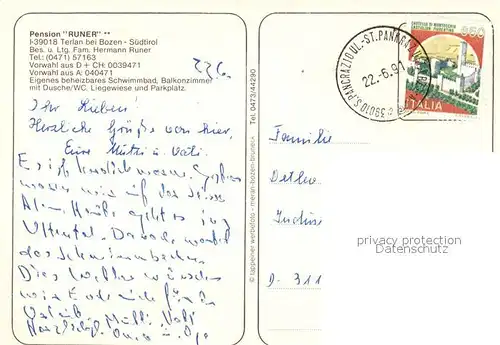 Pension "RUNER" **
I-39018 Terlan bei Bozen - Südtirol
Bes. u. Ltg. Fam. Hermann Runer
Tel: (0471) 57163
Vorwahl aus D + CH: 0039471
Vorwahl aus A: 040471
Eigenes beheizbares Schwimmbad, Balkonzimmer
mit Dusche/WC, Liegewiese und Parkplatz.
22.6.
Ihr Lieben!
Herzliche Grüße von hier,
Eure Mutti u. Vati.
Es ist herrlich warm. Gestern
waren wir auf der Seiser
Alm. Heute geht es ins
Ultental. Danach wartet
das Schwimmbecken.
Dies Wetter wünschen
wir Euch auch für den
Urlaub. Mutti Vati
Herzlichst Oma u. Opa
© tappeiner werbefoto - meran-bozen-bruneck
Tel. 0473/44290
39010 S. PANCRAZIO UL.-ST. PANKRAZ
22.-6.91
CASTELLO DI MONTECCHIO
CASTIGLION FIORENTINO
850
ITALIA
Familie
Detlev
D. 311
privacy protection
Datenschutz